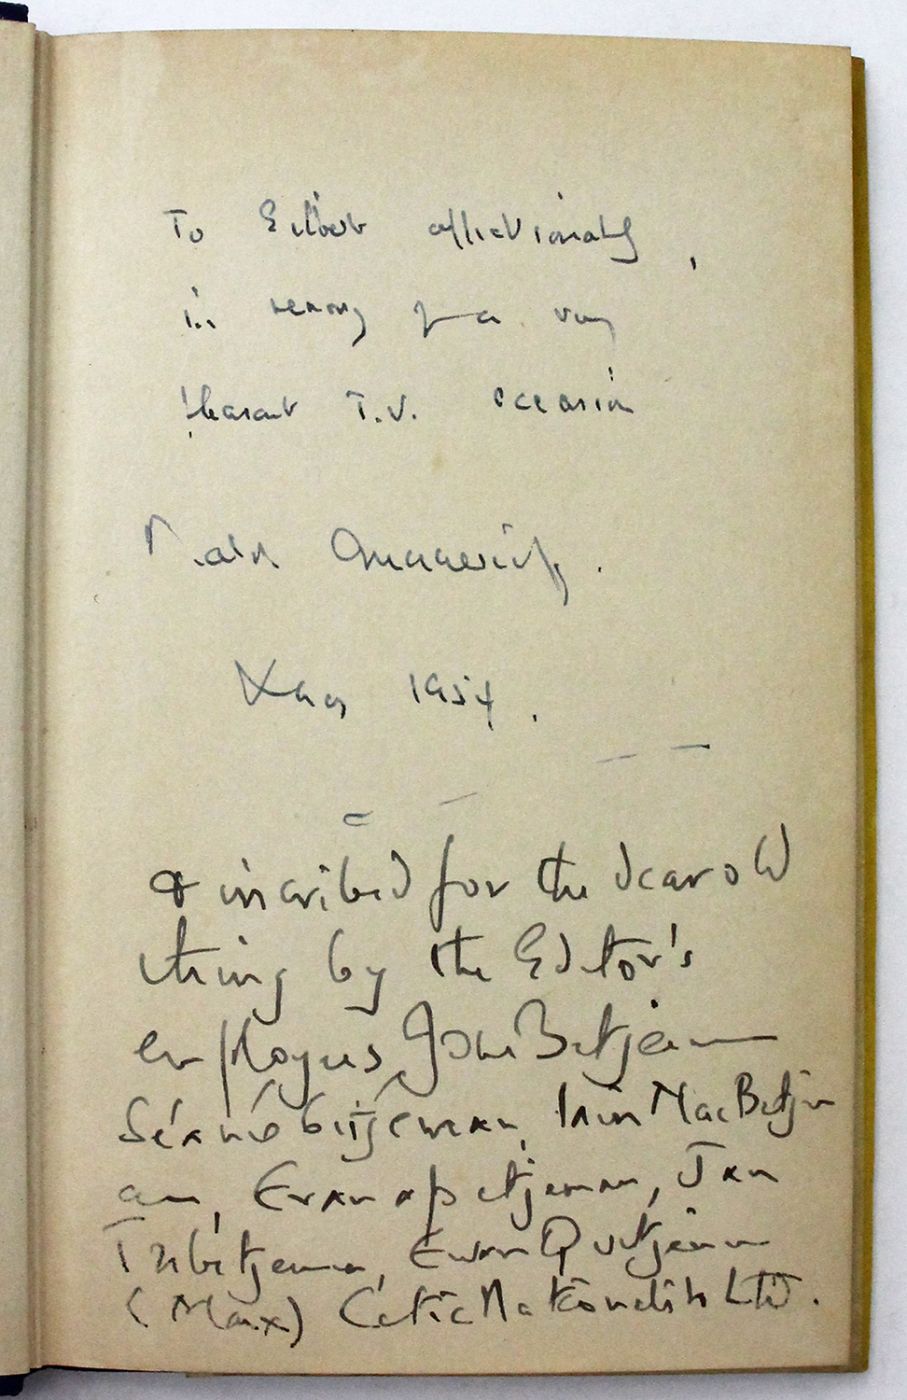 To Gilbert affectionately,
in memory of a very
pleasant T.V. occasion
Malcolm Muggeridge.
1954.
& inscribed for the dear old
thing by the Editor's
employees John Betjeman
Séan O'Betjeman, Iain MacBetjem
an, Evan apBetjeman, Jan
Trebetjeman, Ewan Quetjeman
(Manx) Celtic Nationalists Ltd.